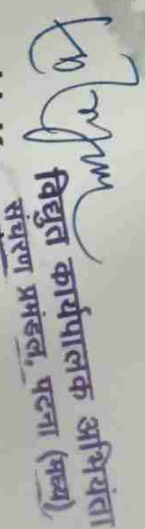 विद्युत कार्यपालक अभियंता
संचरण प्रमंडल, पटना (मध्य)